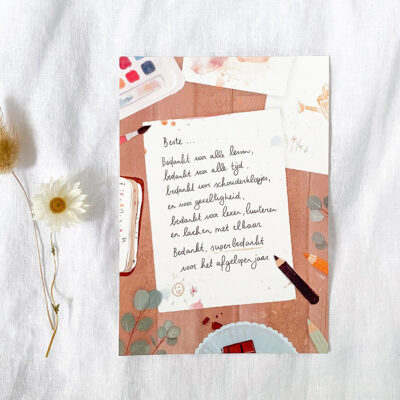 Beste ......
Bedankt voor alle lessen,
bedankt voor alle tijd.
bedankt voor schouderklopjes,
en voor gezelligheid,
bedankt voor leren, luisteren
en lachen met elkaar
Bedankt, superbedankt
voor het afgelopen jaar